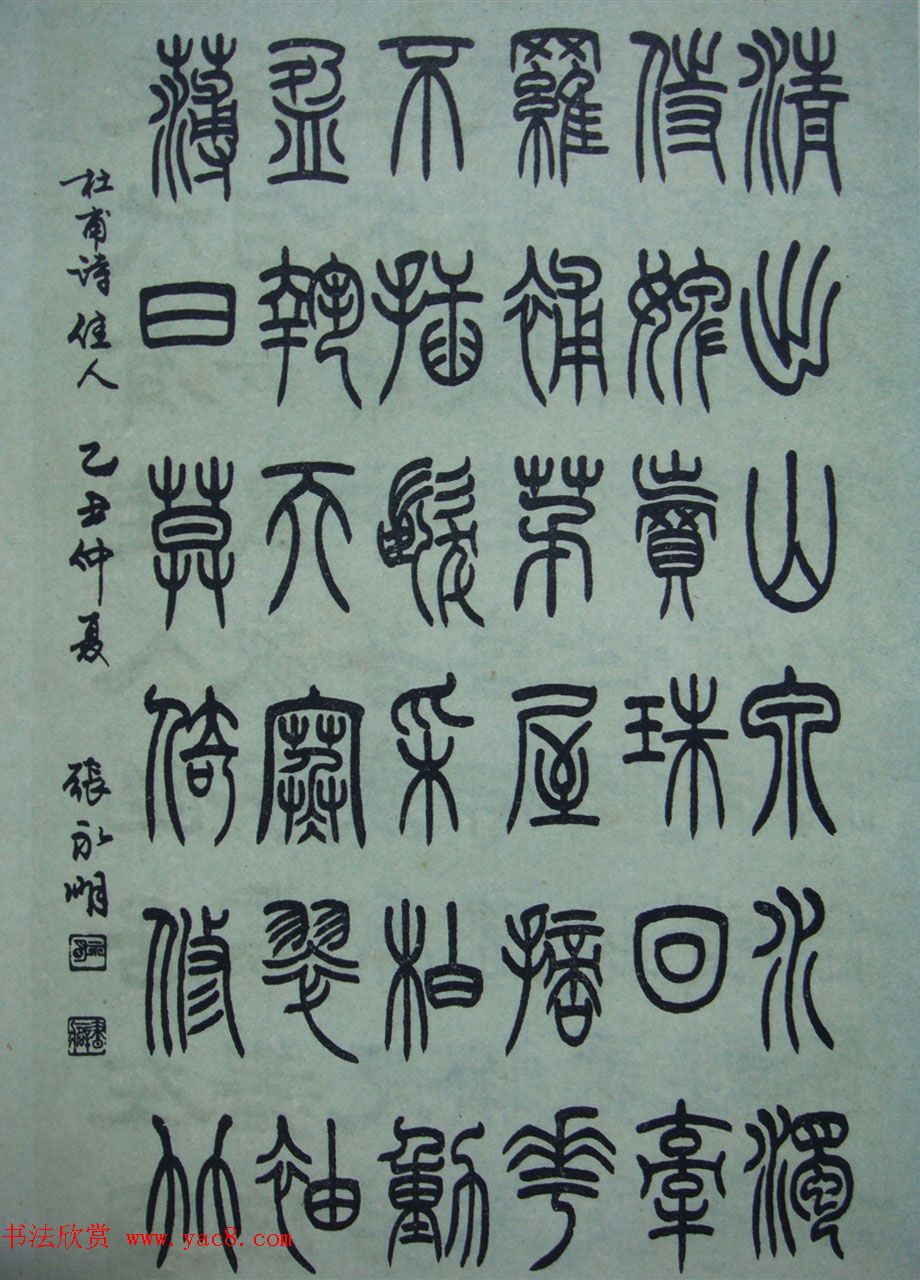 清出山泉水濁
侍婢賣珠回牽
羅補茅屋摘華
不插髮采柏動
盈掬天寒翠袖
薄日莫倚修竹
杜甫詩佳人 乙丑仲夏 張永明
书法欣赏 www.yac8.com